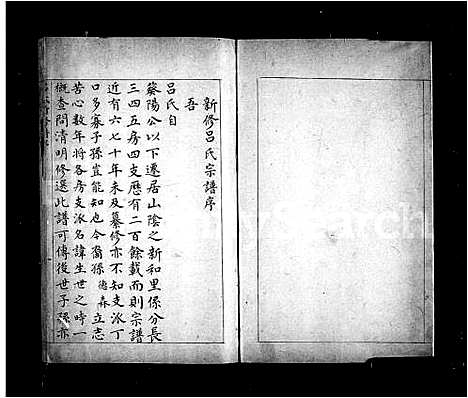 新修呂氏宗譜序
吾
呂氏自
葵陽公以下遷居山陰之新和里係分長
三四五房四支歷有二百餘載而則宗譜
近有六七十年未及纂修亦不知支派丁
口多寡子孫豈能知也今裔孫德森立志
苦心数年将各房支派名諱生世之時一
概查問清明修選此譜可傳後世子孫亦